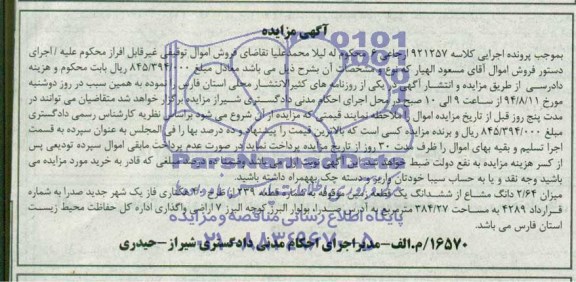 آگهی مزایده
بموجب پرونده اجرایی کلاسه ۹۲۱۲۵۷ اجرایی ۶ محکوم له لیلا محمدعلیا تقاضای فروش اموال توقیفی غیرقابل افراز محکوم علیه / اجرای
دستور فروش اموال آقای مسعود الهیار که نوع و مشخصات آن بشرح ذیل می باشد معادل مبلغ ۸۴۵/۳۹۴/۰۰۰ ریال بابت محکوم و هزینه
دادرسی از طریق مزایده و انتشار آگهی در یکی از روزنامه های کثیرالانتشار محلی استان فارس را نموده به همین سبب در روز دوشنبه
مورخ ۹۴/۸/۱۱ از ساعت ۹ الی ۱۰ صبح در محل اجرای احکام مدنی دادگستری شیراز مزایده برگزار خواهد شد متقاضیان می توانند در
مدت پنج روز قبل از تاریخ مزایده اموال را ملاحظه نمایند قیمتی که مزایده از آن شروع می شود برابر نظریه کارشناس رسمی دادگستری
۸۴۵/۳۹۴/۰۰۰ ریال و برنده مزایده کسی است که بالاترین قیمت را پیشنهاد و ده درصد بها را فی المجلس به عنوان سپرده به قسمت
اجرا تسلیم و بقیه بهای اموال را ظرف مدت ۳۰ روز از تاریخ مزایده پرداخت نماید در صورت عدم پرداخت مابقی اموال سپرده تودیعی پس
از کسر هزینه مزایده به نفع دولت ضبط خواهد شد ضمنا می بایست مبلغی که قادر به خرید مورد مزایده می
باشید وجه نقد و یا به حساب سیبا خودتان واریز و دسته چک بهمراه داشته باشید.
میزان ۲/۶۴ دانگ مشاع از ششدانگ یک قطعه زمین موقوفه به شماره قطعه ۱۲۳۹ طرح تجاری فاز یک شهر جدید صدرا به شماره
قرارداد ۴۲۸۹ به مساحت ۳۸۴/۲۷ متر مربع به آدرس صدرا، بولوار البرز کوچه البرز ۷ اراضی واگذاری اداره کل حفاظت محیط زیست
استان فارس می باشد.
۱۶۵۷۰/م.الف-مدیر اجرای احکام مدنی دادگستری شیراز-حیدری
ParsNamadData
پایگاه اطلاع رسانی مناقصه و مزایده